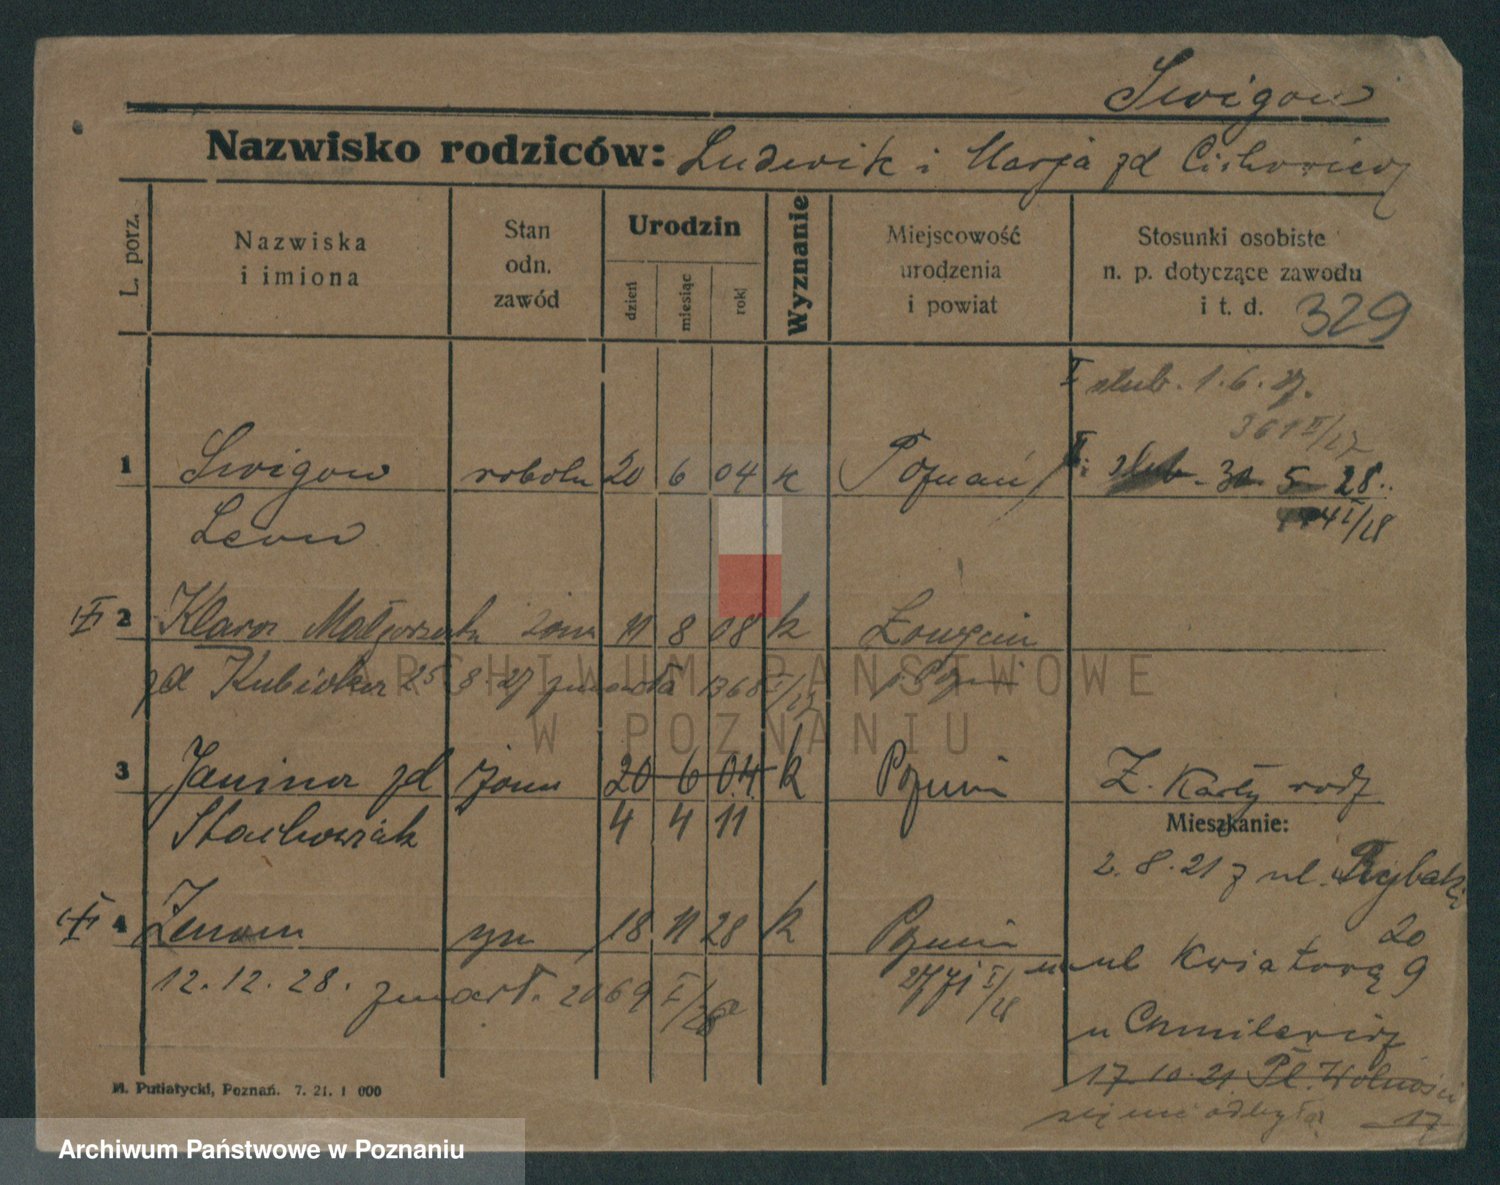 Swigow
Nazwisko rodziców: Ludwik i Marja zd
L. porz.
Nazwiska i imiona
Stan odn. zawód
Urodzin
dzień
miesiąc
rok
Wyznanie
Miejscowość urodzenia i powiat
Stosunki osobiste n. p. dotyczące zawodu i t. d.
329
I ślub. 1. 6. 27.
361 I/27
1 Swigow robotn 20 6 04 k Poznań II: ślub 30 5 28.
Leon
I/28
2 Klara Małgorzata żona 11 8 08 k
zd Kubicka 25 8. 27 zmarła 1368 I/27
ARCHIWUM PAŃSTWOWE
W POZNANIU
3 Janina zd żona 20 6 04 k Poznań Z. Karty rodz
Stachowiak 4 4 11
Mieszkanie:
2. 8. 21 z ul. Rybaki
20
4 Zenon syn 18 11 28 k Poznań
ul Kwiatową 9
12. 12. 28. zmarł. 2069 I/28
2771 I/28
u
17. 10. 21 Pl. Wolności
17
M. Putiatycki, Poznań. 7. 21. 1 000
Archiwum Państwowe w Poznaniu